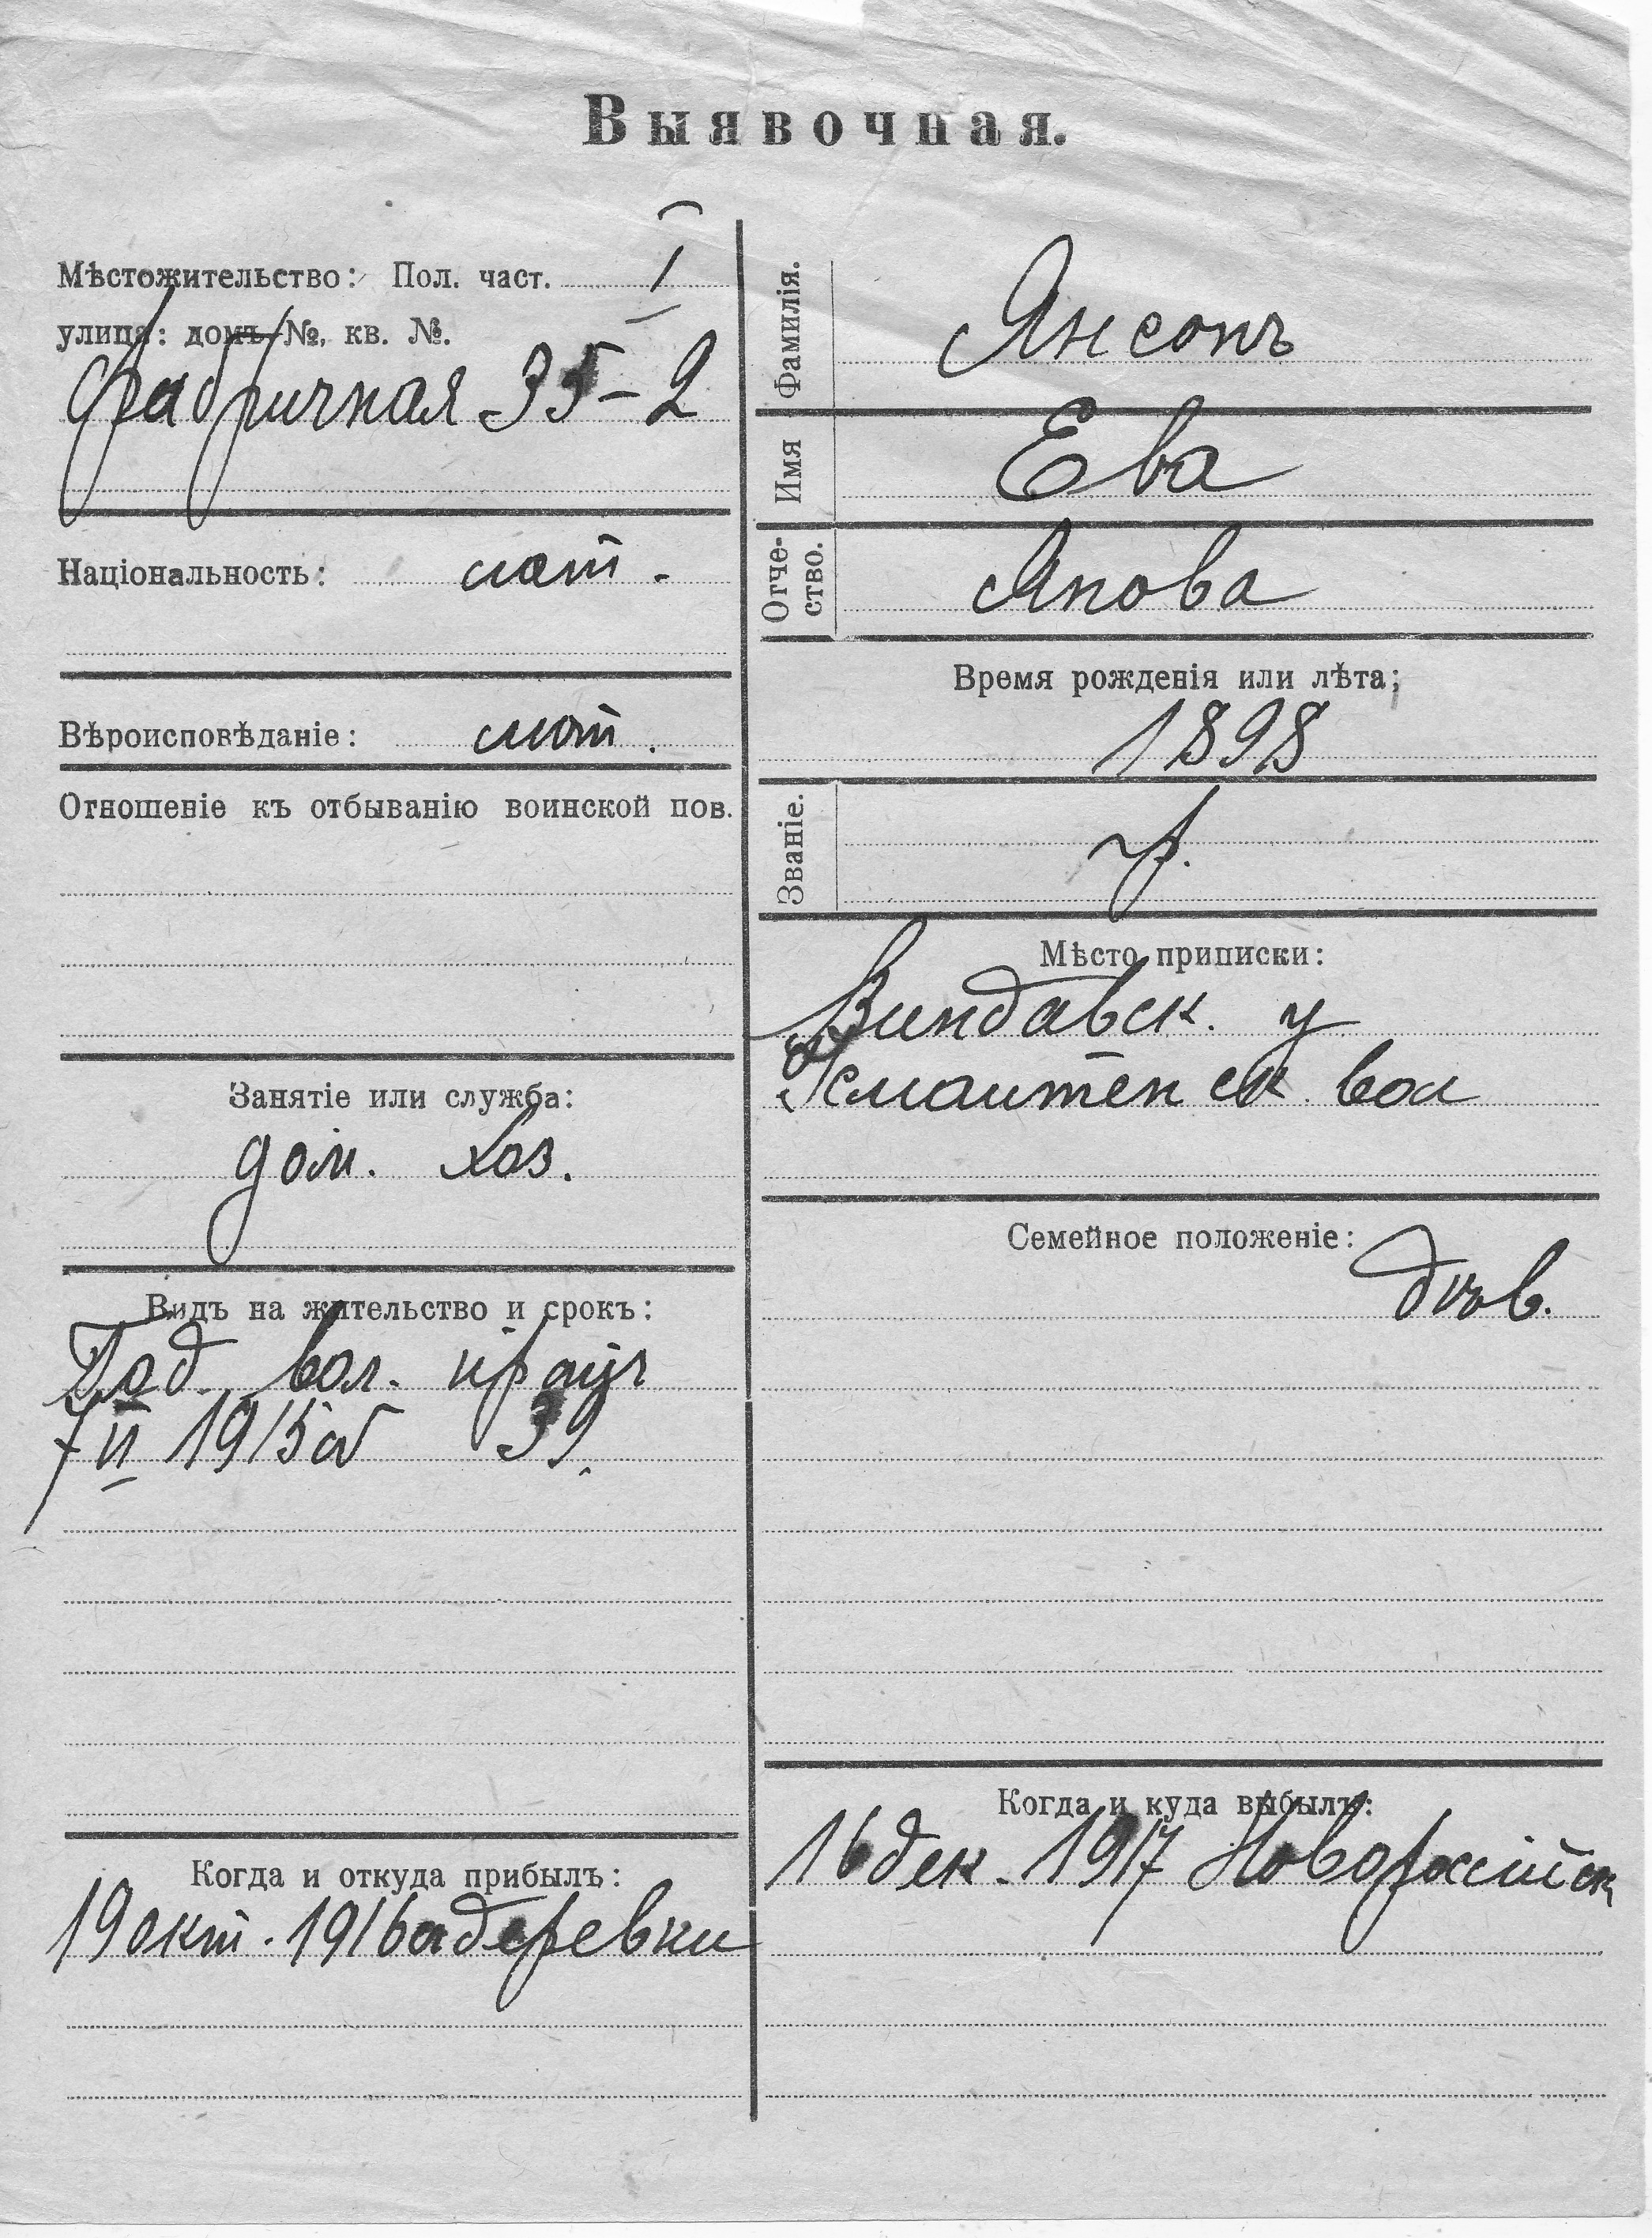 Выявочная.
Мѣстожительство: Пол. част. I
улица: домъ №, кв. №.
фабричная 35-2
Національность: лат.
Вѣроисповѣданіе: лют.
Отношеніе къ отбыванію воинской пов.
Занятіе или служба:
дом. хоз.
Видъ на жительство и срокъ:
вол.
II 1915 39.
Когда и откуда прибылъ:
19 окт. 1916 деревни
Фамилія. Янсонъ
Имя Ева
Отче-
ство. Янова
Время рожденія или лѣта;
1898
Званіе. гр.
Мѣсто приписки:
Виндавск. у
вол
Семейное положеніе:
дѣв.
Когда и куда выбылъ:
16 дек. 1917 Новороссійск